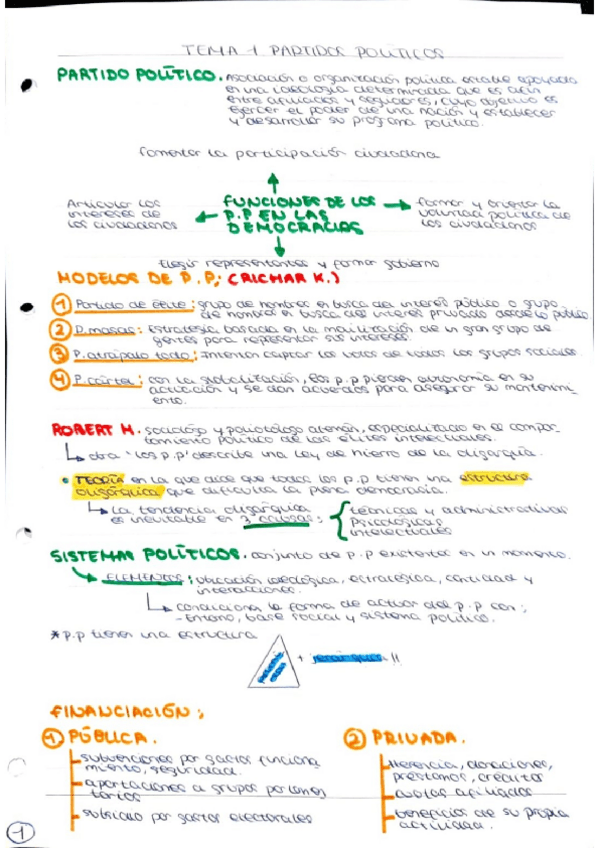 TEMA 1 PARTIDOS POLÍTICOS
PARTIDO POLÍTICO. Asociación o organización política estable apoyada
en una ideología determinada que es afín
entre afiliados y seguidores, cuyo objetivo es
ejercer el poder de una nación y establecer
y desarrollar su programa político.
fomentar la participación ciudadana
Articular los
intereses de
los ciudadanos
FUNCIONES DE LOS
P.P EN LAS
DEMOCRACIAS
formar y orientar la
voluntad política de
los ciudadanos
Elegir representantes y formar gobierno
MODELOS DE P.P; (RICHAR K.)
1 Partido de élite: grupo de hombres en busca del interés público o grupo
de hombres en busca del interés privado desde lo público
2 P.masas: Estrategia basada en la movilización de un gran grupo de
gentes para representar sus intereses.
3 P.atrápalo todo: Intentan captar los votos de todos los grupos sociales.
4 P.cártel: con la globalización, los p.p pierden autonomía en su
actuación y se dan acuerdos para asegurar su mantenimi-
ento.
ROBERT M. sociólogo y politólogo alemán, especializado en el compor-
tamiento político de las élites intelectuales.
obra "los p.p" describe una Ley de hierro de la oligarquía.
TEORÍA en la que dice que todos los p.p tienen una estructura
oligárquica que dificulta la plena democracia.
La tendencia oligárquica
es inevitable en 3 causas:
técnicas y administrativas
Psicológicas
intelectuales
SISTEMAS POLÍTICOS. conjunto de p.p existentes en un momento.
ELEMENTOS: ubicación ideológica, estratégica, cantidad y
interacciones.
condiciona la forma de actuar del p.p con;
- Entorno, base social y sistema político.
* P.p tienen una estructura
+ jerárquica !!
FINANCIACIÓN;
1 PÚBLICA.
subvenciones por gastos funciona
miento, seguridad.
aportaciones a grupos parlamen
tarios
subsidio por gastos electorales
2 PRIVADA.
Herencia, donaciones,
préstamos, créditos
cuotas afiliados
beneficios de su propia
actividad.
1